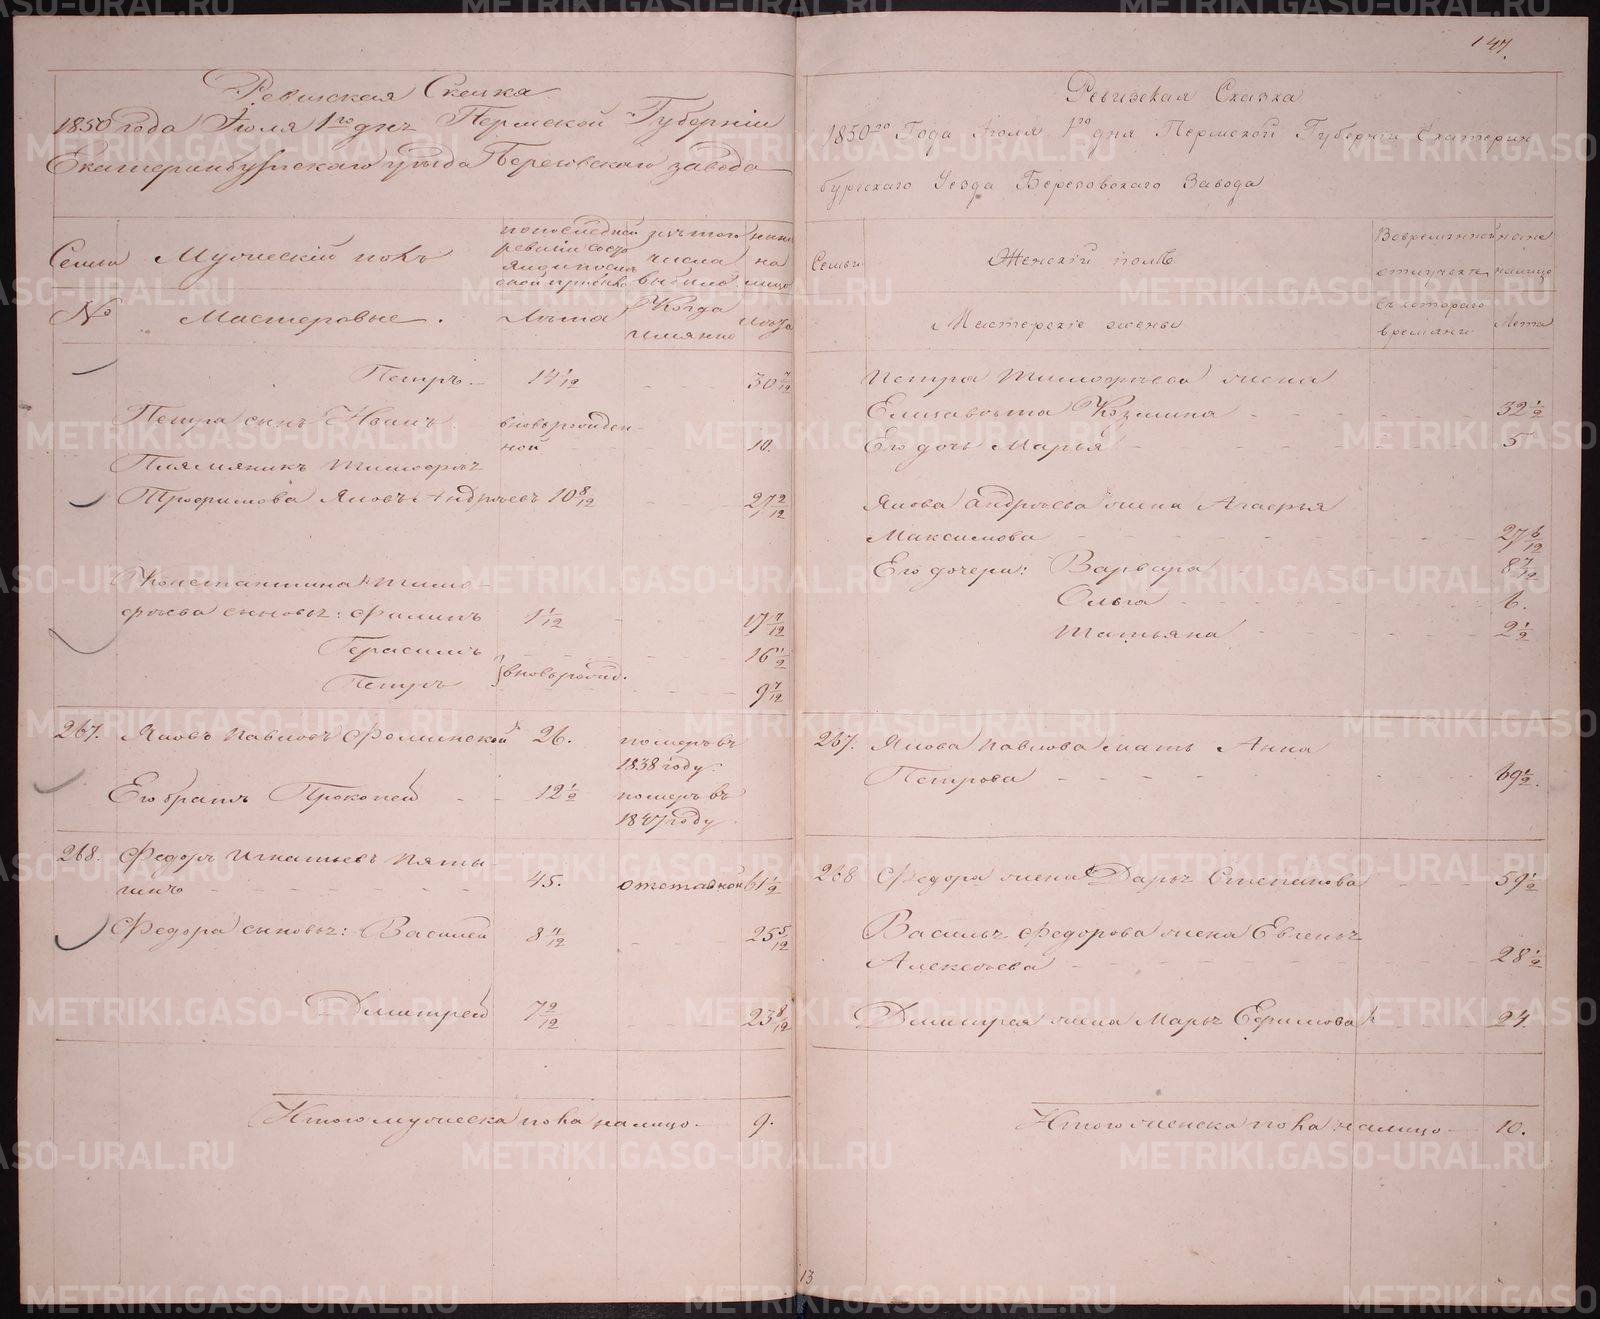 147.
Ревизская Сказка
1850 года Июля 1го дня Пермской Губернии
Екатеринбургскаго уезда Березовскаго завода
Семьи
Мужеский полъ
по последней ревизии состояло и после оной прибыло
изъ того числа выбыло
ныне на лицо
№
Мастеровые.
Лета
Когда имянно
Лета
Петръ - 14 1/12 - - 30 7/12
Петра сынъ Иванъ вновьрожден-
ной - - 10.
Племяникъ Тимофея
Трофимова Яковъ Андреевъ 10 8/12 27 2/12
Константина Тимо-
феева сыновья: Филипъ 1 1/12 - 17 7/12
Герасимъ - - - 16 1/2
Петръ вновьрожд. 9 7/12
267. Яковъ Павловъ Фоминской 26. померъ въ
1838 году.
Его братъ Прокопей - - 12 1/2 померъ въ
1847 году
268. Федоръ Игнатьевъ Пяты-
шинъ - - - 45. отставной 61 1/2
Федора сыновья: Василей 8 11/12 25 5/12
Дмитрей 7 2/12 23 8/12
Итого мужеска пола налицо - 9.
Ревизская Сказка
1850го Года Июля 1го дня Пермской Губернии Екатерин
бургскаго Уезда Березовскаго Завода
Семьи
Женский полъ
Во временной отлучке
ныне налицо
Мастерские жены
съ котораго времяни
Лета
Петра Тимофеева жена
Елизавета Козмина - - - 32 1/2
Его дочь Марья - - - 5
Якова Андреева жена Агафья
Максимова - - - 27 6/12
Его дочери: Варвара - - 8 7/12
Ольга - - - 6.
Татьяна - - - 2 1/2
267. Якова Павлова мать Анна
Петрова - - - 69 1/2.
268 Федора жена Дарья Степанова - - - 59 1/2
Василья Федорова жена Евгенья
Алексеева - - - 28 1/2
Дмитрея жена Марья Ефимова - - 24.
Итого женска пола налицо - 10.
13
METRIKI.GASO-URAL.RU